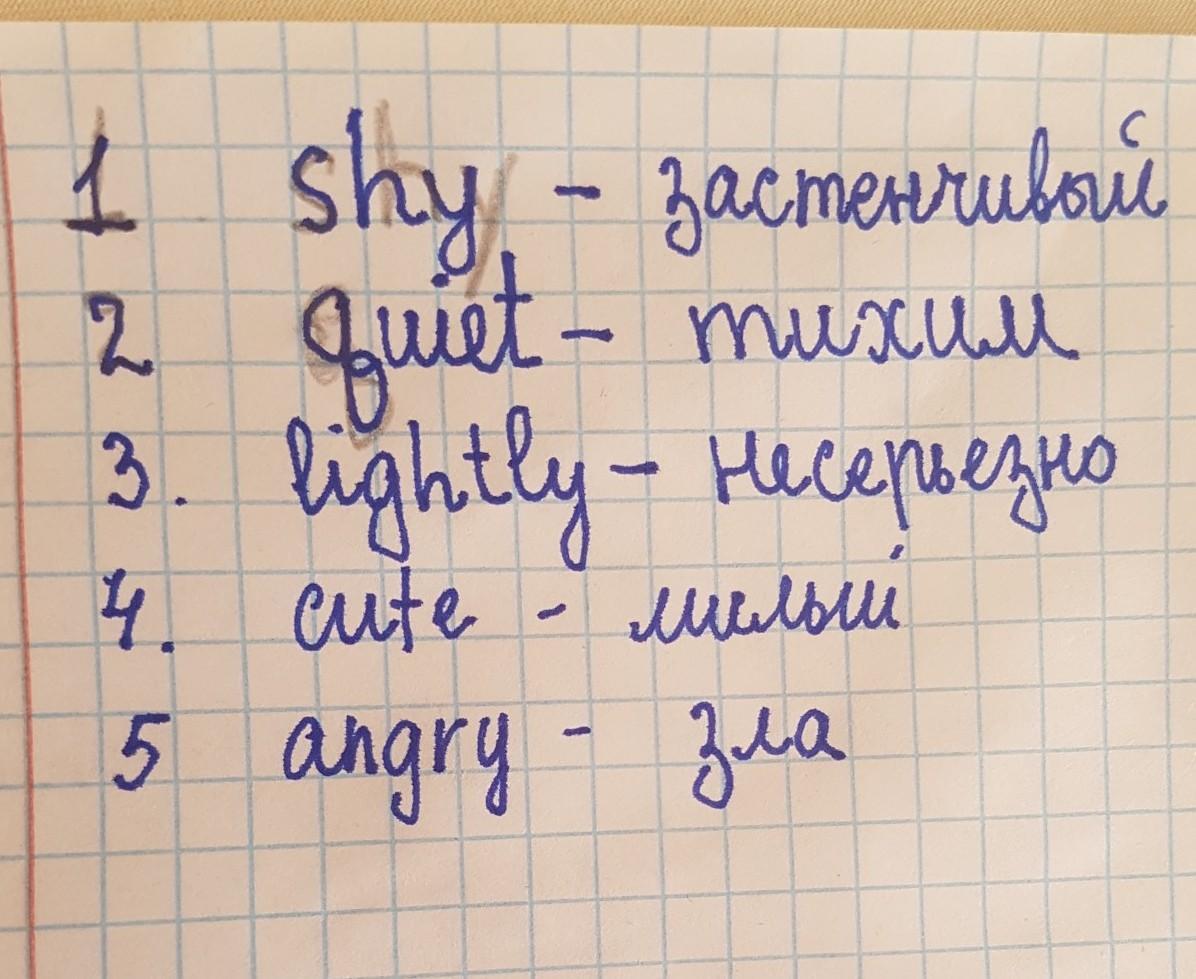 1 shy - застенчивый
2 quiet - тихим
3. lightly - несерьезно
4. cute - милый
5 angry - зла